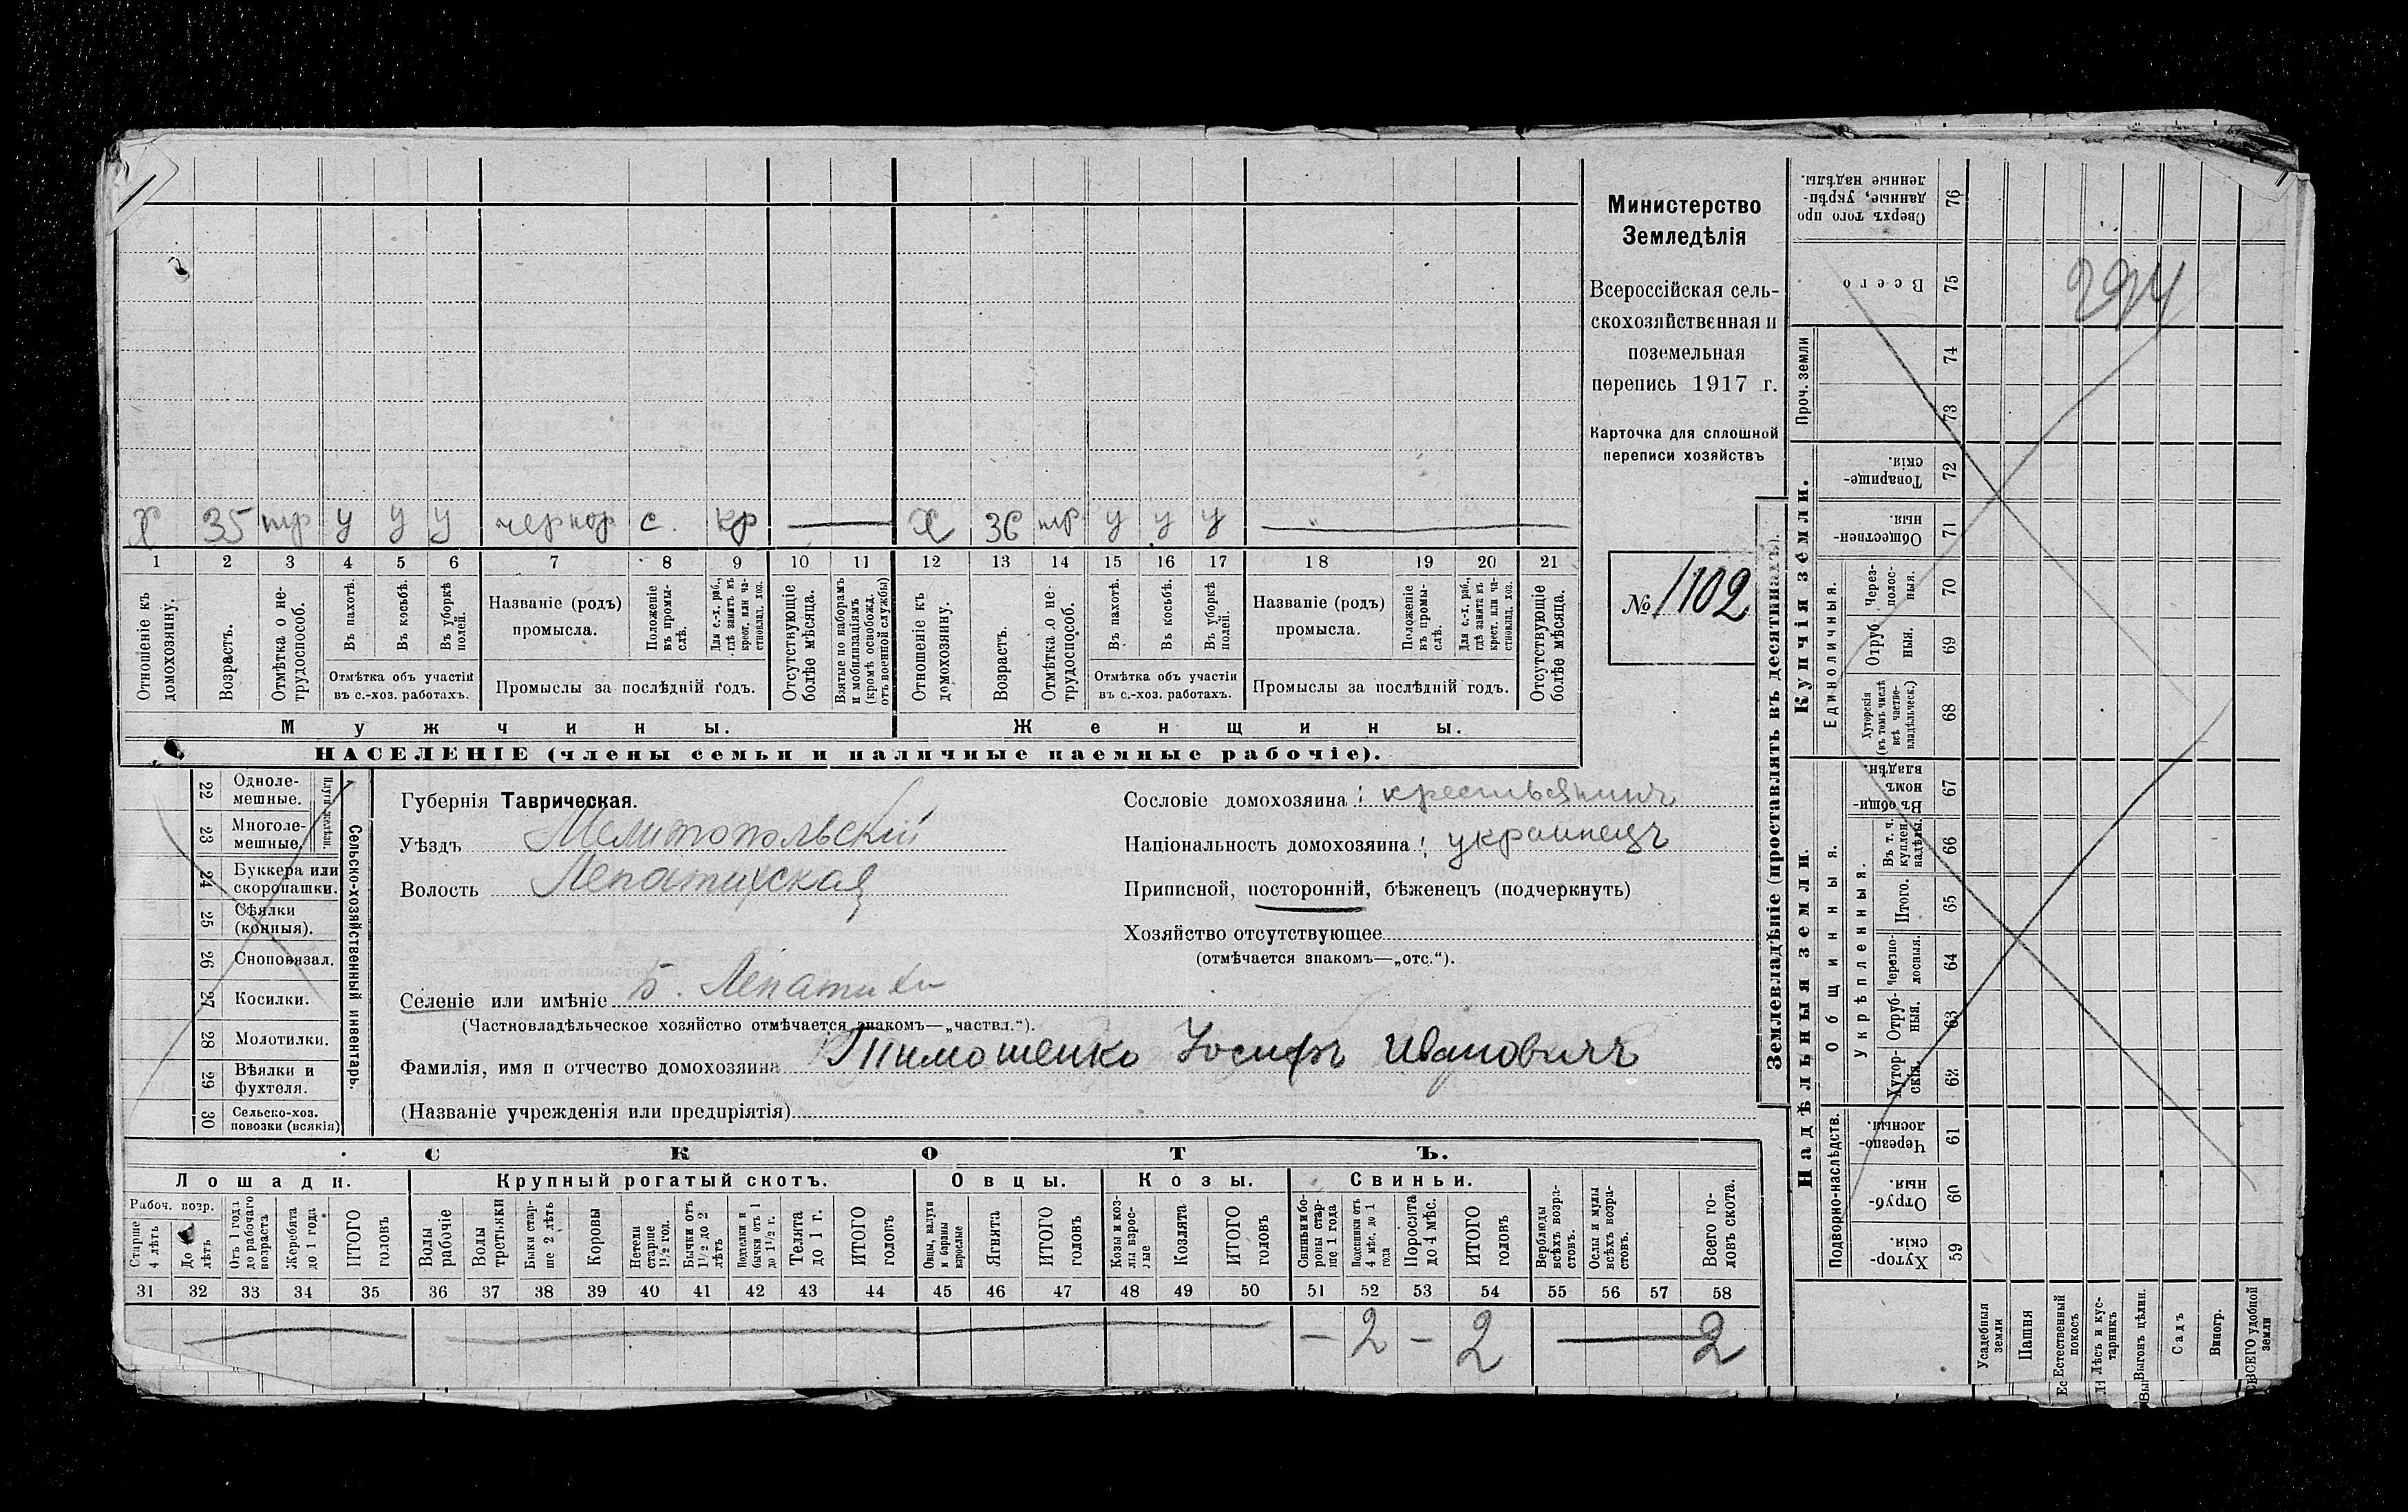 Х 35 тр у у у чернор с. кр — Х 36 тр у у у —
1 2 3 4 5 6 7 8 9 10 11 12 13 14 15 16 17 18 19 20 21
Отношеніе къ домохозяину.
Возрастъ.
Отмѣтка о нетрудоспособ.
Въ пахотѣ.
Въ косьбѣ.
Въ уборкѣ полей.
Отмѣтка объ участіи
въ с.-хоз. работахъ.
Названіе (родъ)
промысла.
Положеніе въ промыслѣ.
Для с.-х. раб., гдѣ занятъ въ крест. или частновлад. хоз.
Промыслы за послѣдній годъ.
Отсутствующіе болѣе мѣсяца.
Взятые по наборамъ и мобилизаціямъ (кромѣ освобожд. отъ военной службы)
Отношеніе къ домохозяину.
Возрастъ.
Отмѣтка о нетрудоспособ.
Въ пахотѣ.
Въ косьбѣ.
Въ уборкѣ полей.
Отмѣтка объ участіи
въ с.-хоз. работахъ.
Названіе (родъ)
промысла.
Положеніе въ промыслѣ.
Для с.-х. раб., гдѣ занята въ крест. или частновлад. хоз.
Промыслы за послѣдній годъ.
Отсутствующіе болѣе мѣсяца.
Мужчины.
Женщины.
НАСЕЛЕНІЕ (члены семьи и наличные наемные рабочіе).
Министерство
Земледѣлія
Всероссійская сель-
скохозяйственная и
поземельная
перепись 1917 г.
Карточка для сплошной
переписи хозяйствъ
№ 1102
22 Одноле-
мешные.
23 Многоле-
мешные
24 Буккера или
скоропашки.
25 Сѣялки
(конныя).
26 Сноповязал.
27 Косилки.
28 Молотилки.
29 Вѣялки и
фухтеля.
30 Сельско-хоз.
повозки (всякія)
Сельско-хозяйственный инвентарь.
Губернія Таврическая.
Уѣздъ Мелитопольскій
Волость Лепатихская
Селеніе или имѣніе Б. Лепатиха
(Частновладѣльческое хозяйство отмѣчается знакомъ—„частвл.“).
Фамилія, имя и отчество домохозяина Тимошенко Іосифъ Ивановичъ
(Названіе учрежденія или предпріятія)
Сословіе домохозяина: крестьянинъ
Національность домохозяина: украинецъ
Приписной, посторонній, бѣженецъ (подчеркнуть)
Хозяйство отсутствующее
(отмѣчается знакомъ—„отс.“).
СКОТЪ.
Лошади. Крупный рогатый скотъ. Овцы. Козы. Свиньи.
Рабоч. возр.
Старше 4 лѣтъ
До лѣтъ
Отъ 1 года до рабочаго возраста
Жеребята до 1 года
ИТОГО головъ
Волы рабочіе
Волы третьяки
Быки старше 2 лѣтъ
Коровы
Нетели старше 1 1/2 год.
Бычки отъ 1 1/2 до 2 лѣтъ
Подтелки и бычки отъ 1 до 1 1/2 г.
Телята до 1 г.
ИТОГО головъ
Овцы, валухи и бараны взрослые
Ягнята
ИТОГО головъ
Козы и козлы взрослые
Козлята
ИТОГО головъ
Свиньи и бороны старше 1 года
Подсвинки отъ 4 мѣс. до 1 года
Поросята до 4 мѣс.
ИТОГО головъ
Верблюды всѣхъ возрастовъ.
Ослы и мулы всѣхъ возрастовъ.
Всего головъ скота.
31 32 33 34 35 36 37 38 39 40 41 42 43 44 45 46 47 48 49 50 51 52 53 54 55 56 57 58
— 2 — 2 — 2
Землевладѣніе (проставлять въ десятинахъ).
Надѣльныя земли.
Купчія земли.
Проч. земли
Подворно-наслѣдств.
Общинныя.
Укрѣпленныя.
Единоличныя.
Сверхъ того проданные, укрѣпленные надѣлы. 76
Всего 75
74
73
Товарищескія. 72
Общественныя. 71
Черезполосныя. 70
Отрубныя. 69
Хуторскія (въ томъ числѣ всѣ частновладѣльческ.) 68
Въ общинномъ владѣн. 67
Въ т. ч. куплен. надѣлы. 66
Итого. 65
Черезполосныя. 64
Отрубныя. 63
Хуторскія. 62
Черезполосныя. 61
Отрубныя. 60
Хуторскія. 59
294
Усадебныя земли
Пашня
Естественный покосъ
Лѣсъ и кустарникъ
Выгонъ цѣлин.
Садъ
Виногр.
ВСЕГО удобной земли